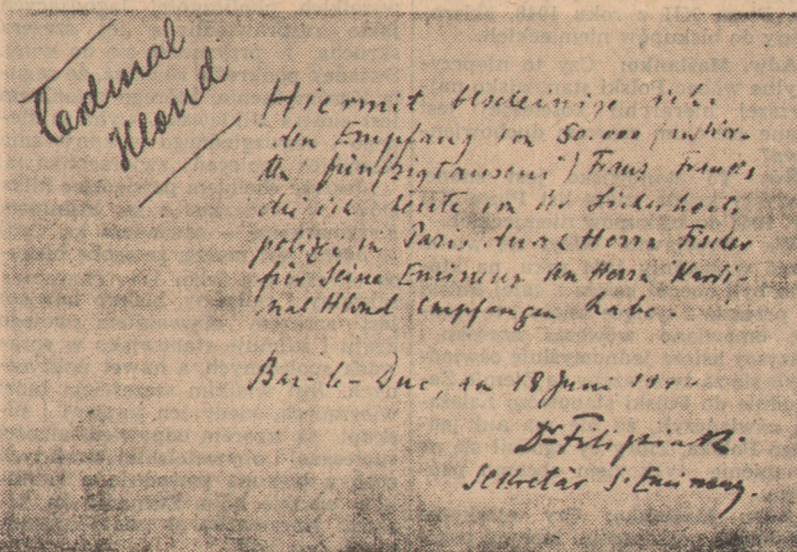 Cardinal
Hlond
Hiermit bescheinige ich
den Empfang von 50.000 (in Wor-
ten fünfzigtausend) Franz. Franks
die ich heute von der Sicherheits
polizei in Paris durch Herrn Fischer
für Seine Eminenz den Herrn Kardi-
nal Hlond empfangen habe.
Bar-le-Duc, am 18 Juni
Dr Filipiak
Sekretär S. Eminenz.